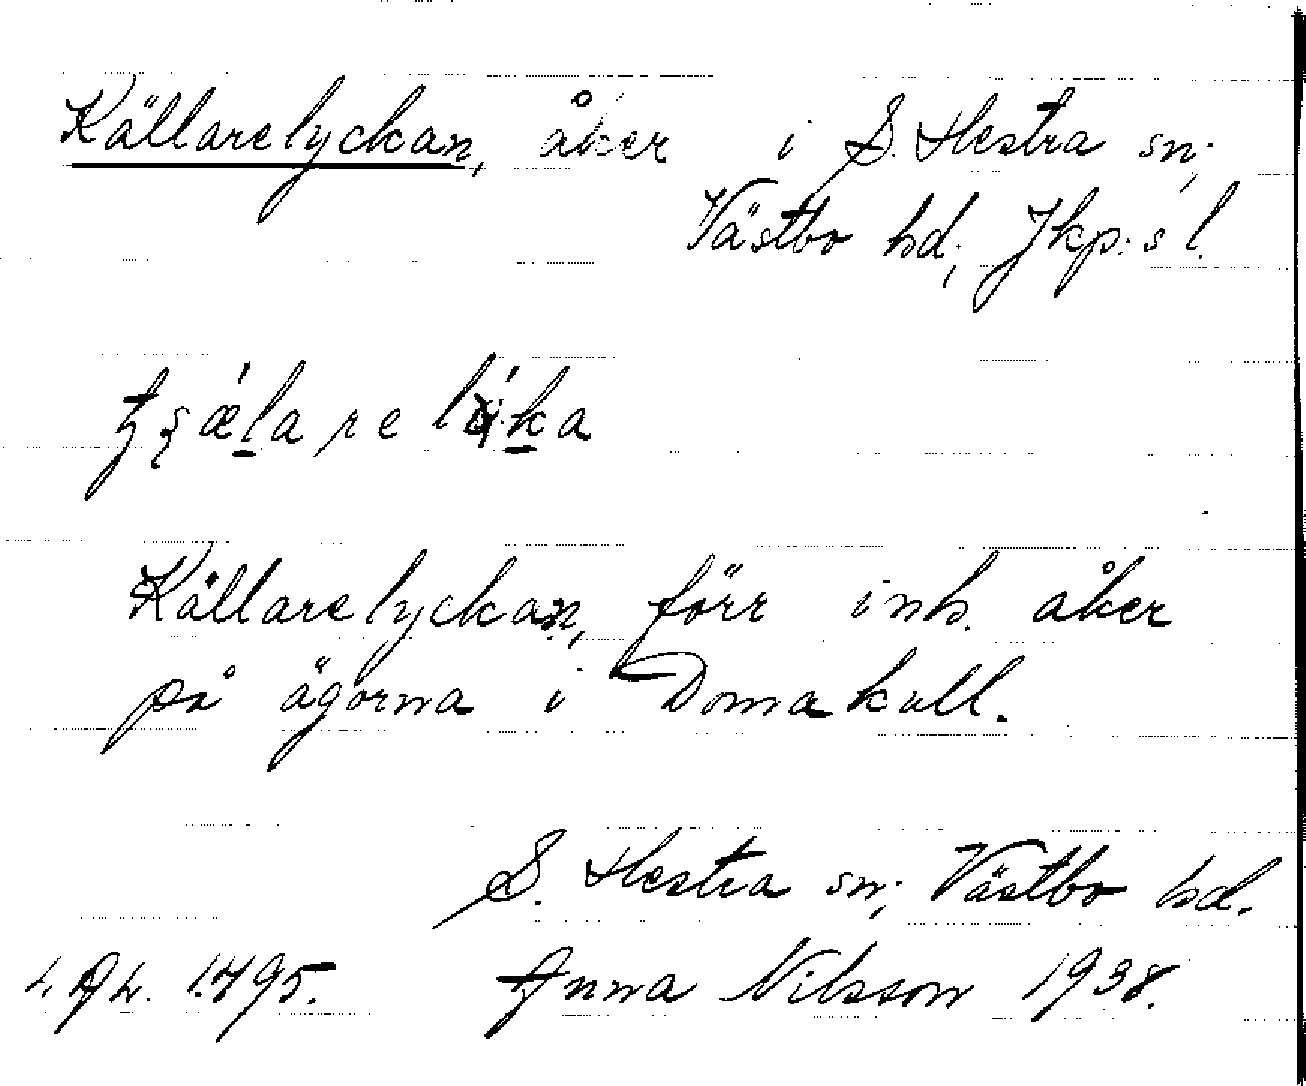 Källarelyckan, åker i S. Hestra sn;
Västbo hd; Jkp:s l.
Källarelyckan, förr inh. åker
på ägorna i Domakull.
S. Hestra sn; Västbo hd.
1.495. Anna Nilsson 1938.